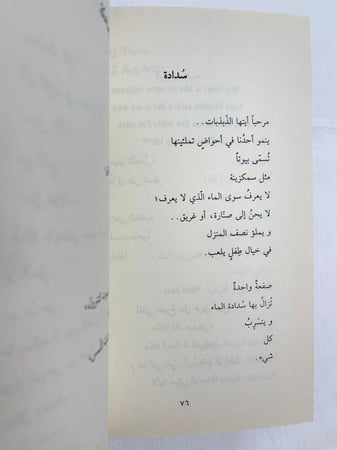 سُدادة
مرحباً أيتها الذّبذبات..
ينمو أحدُنا في أحواضٍ تملئينها
تُسمّى بيوتاً
مثل سمكزينة
لا يعرفُ سوى الماء الّذي لا يعرف؛
لا يحنُّ إلى صنّارة، أو غريق..
و يملؤ نصف المنزل
في خيال طِفلٍ يلعب.
صفعةٌ واحدةٌ
تُزالُ بها سُدادة الماء
و ينسَرِبُ
كل
شيء.
٧٦